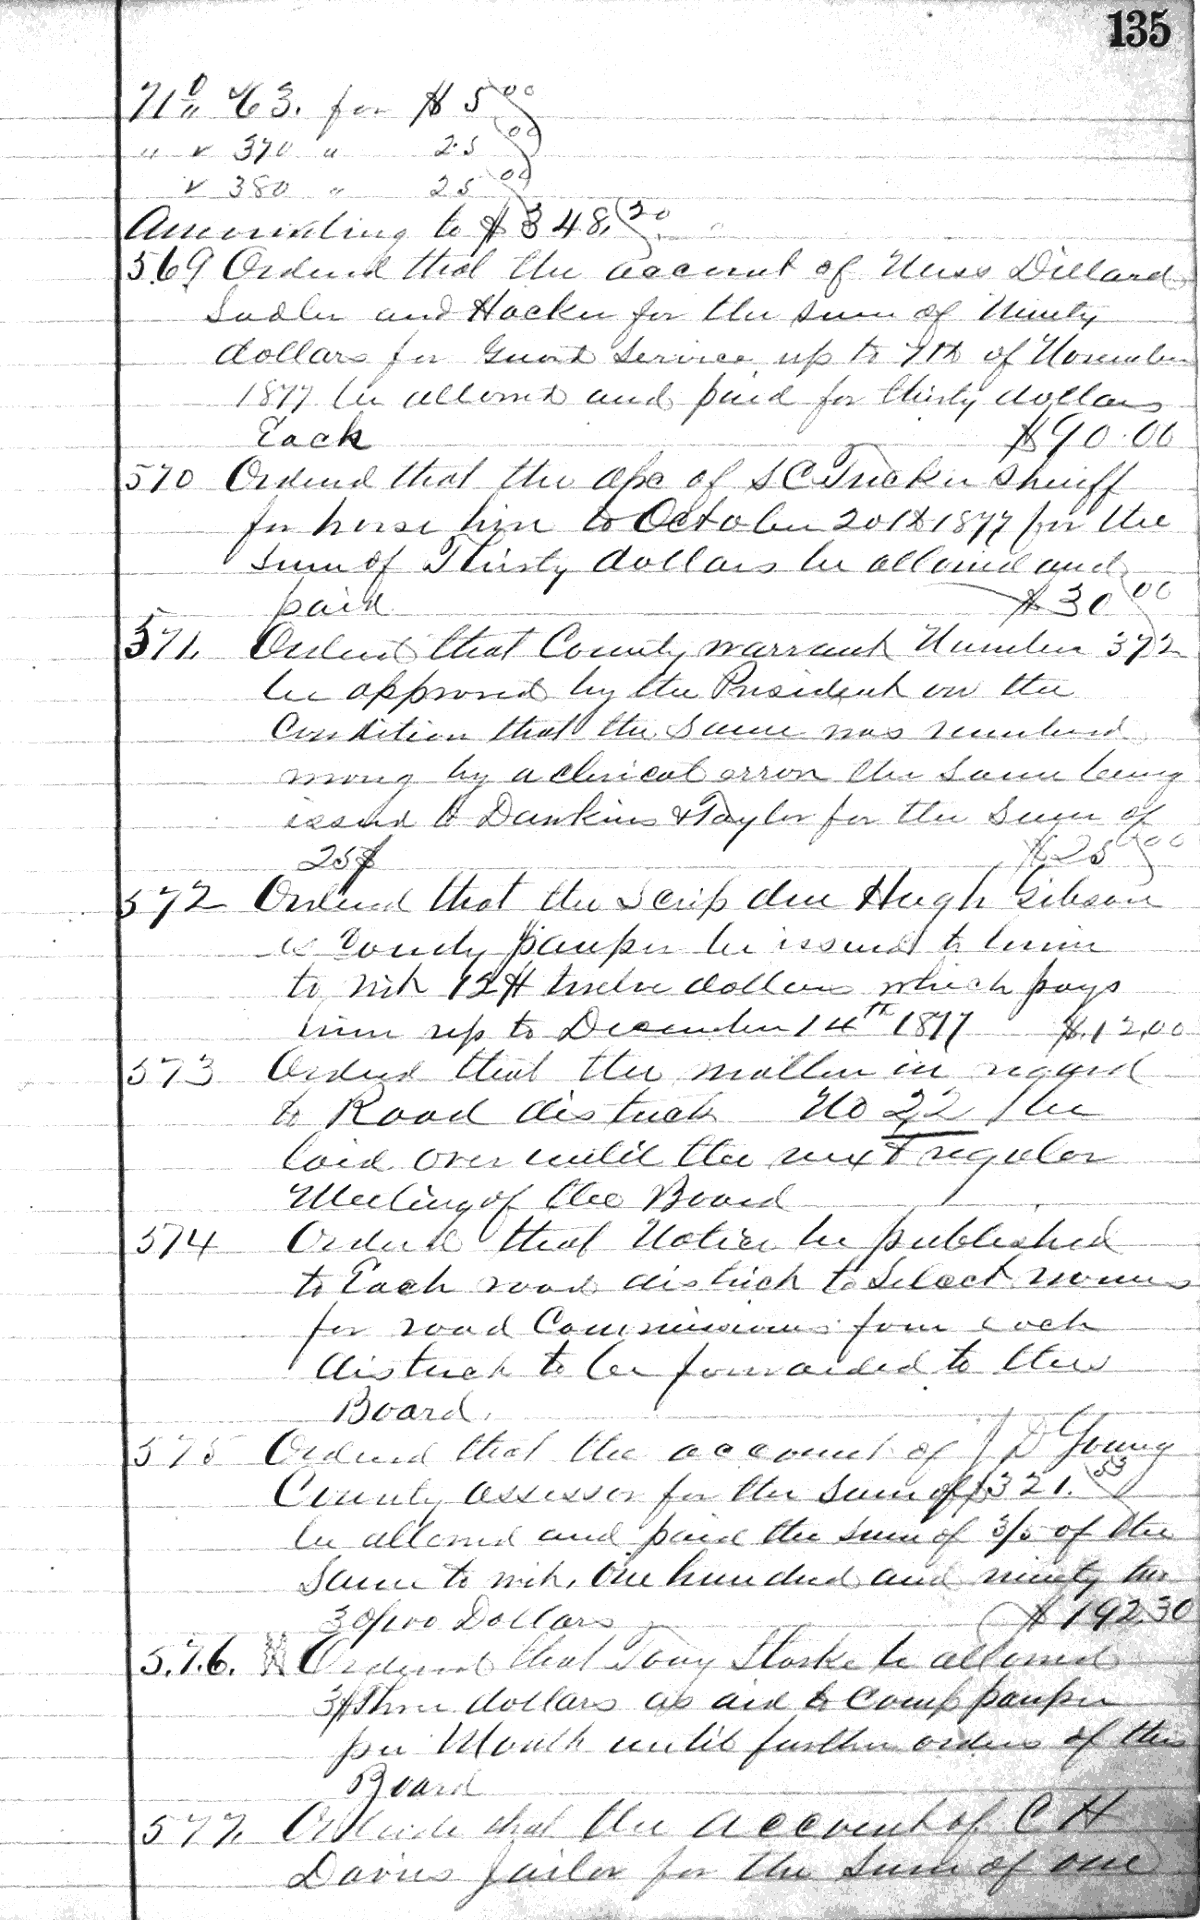 135
No 63. for $5 00
" " 370 " 25 00
" 380 " 25 00
Amounting to $348.20
569 Ordered that the account of Mess Dillard
Sadler and Hacker for the sum of Ninety
dollars for Guard Service up to 7th of November
1877 be allowed and paid for thirty dollars
Each $90.00
570 Ordered that the a/c of S C Tucker Sheriff
for horse hire to October 20th 1877 for the
sum of Thirty dollars be allowed and
paid $30 00
571. Ordered that County warrant Number 372
be approved by the President on the
Condition that the same was numbered
wrong by a clerical error the same being
issued to Dawkins & Taylor for the sum of
25$ $25 00
572 Ordered that the Scrip due Hugh Gibson
a County pauper be issued to him
to wit 12$ twelve dollars which pays
him up to December 14th 1877 $12,00
573 Ordered that the matter in regard
to Road district No 22 be
laid over until the next regular
Meeting of the Board
574 Ordered that Notice be published
to Each road district to Select names
for road Commissioners from each
district to be forwarded to this
Board.
575 Ordered that the account of J D Young
County assessor for the sum of $321.53
be allowed and paid the sum of 3/5 of the
Same to wit, One hundred and ninety two
30/100 Dollars $192.30
5.7.6. Ordered that Tony Starke be allowed
3$ three dollars as aid to Camp pauper
per Month until further orders of this
Board
577. Ordered that the account of C H
Davies Jailor for the Sum of one